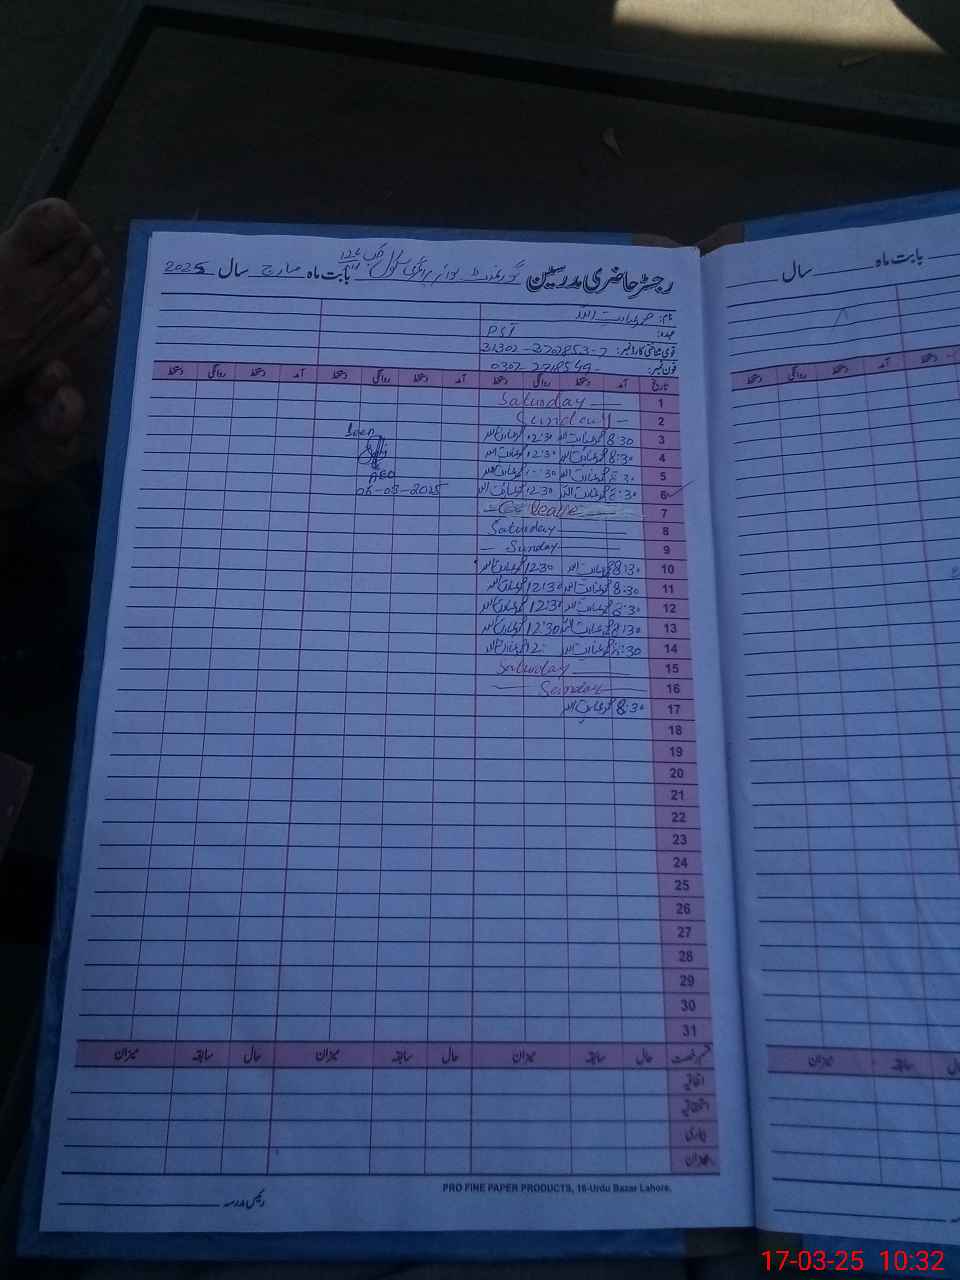 رجسٹر حاضری مدرسین گورنمنٹ بوائز پرائمری سکول بابت ماہ مارچ سال 2025
بابت ماہ سال
نام:
عہدہ: PST
قومی شناختی کارڈ نمبر:
فون نمبر:
تاریخ آمد دستخط روانگی دستخط آمد دستخط روانگی دستخط آمد دستخط روانگی دستخط
دستخط آمد دستخط روانگی دستخط
1 Saturday
2 Sunday
3 8:30 12:30
4 8:30 12:30
5 8:30 12:30
Seen
AEO
6 8:30 12:30 06-03-2025
7 Leave
8 Saturday
9 Sunday
10 8:30 12:30
11 8:30 12:30
12 8:30 12:30
13 8:30 12:30
14 8:30 12:
15 Saturday
16 Sunday
17 8:30
18
19
20
21
22
23
24
25
26
27
28
29
30
31
قسم رخصت حال سابقہ میزان حال سابقہ میزان حال سابقہ میزان
سابقہ میزان
اتفاقیہ
استحقاقیہ
بیماری
میزان
PRO FINE PAPER PRODUCTS, 16-Urdu Bazar Lahore.
رئیس مدرسہ
17-03-25 10:32